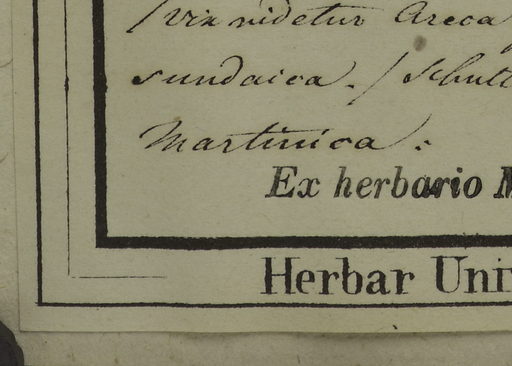 /vix videtur Areca
sundaica./ Schutt
Martinica.
Ex herbario M
Herbar Uni